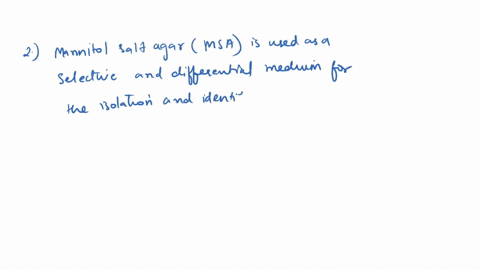 2.) Mannitol salt agar (MSA) is used as a
selective and differential medium for
the isolation and identi